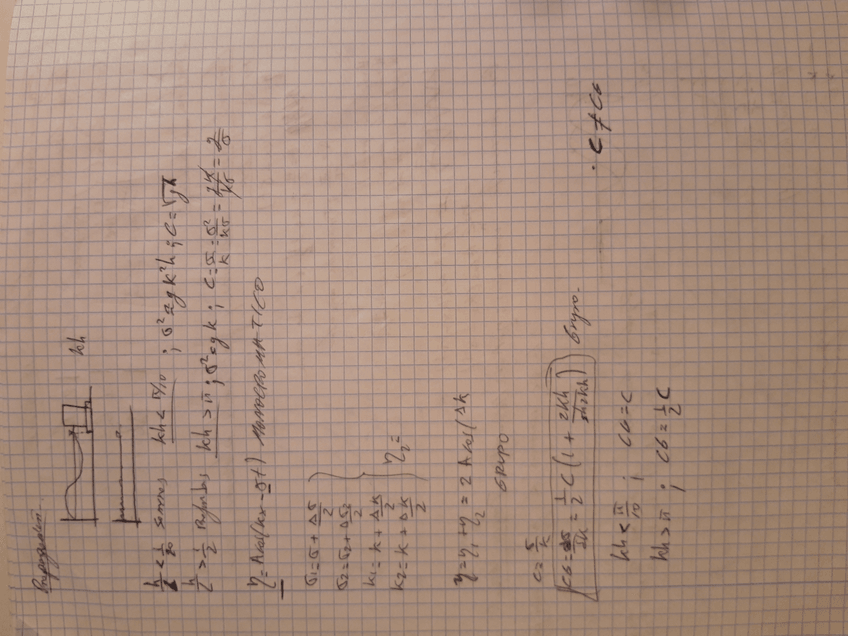 Propagación
kh
h/L < 1/20 someras kh < π/10 ; σ² = gk²h ; C = √gh
h/L > 1/2 Profundas kh > π ; σ² = gk ; C = σ/k = σ²/kσ = gk/kσ = g/σ
η = A cos(kx - σt) MONOCROMÁTICO
σ1 = σ + Δσ/2
σ2 = σ2 + Δσ2/2
k1 = k + Δk/2
k2 = k + Δk/2
η2 =
η = η1 + η2 = 2 A cos(Δk
GRUPO
C = σ/k
CG = Δσ/Δk = 1/2 C (1 + 2kh/sh2kh) Grupo.
kh < π/10 ; CG = C
kh > π ; CG = 1/2 C
· C ≠ CG